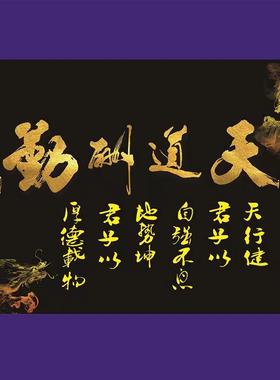 天道酬勤
天行健
君子以
自强不息
地势坤
君子以
厚德載物